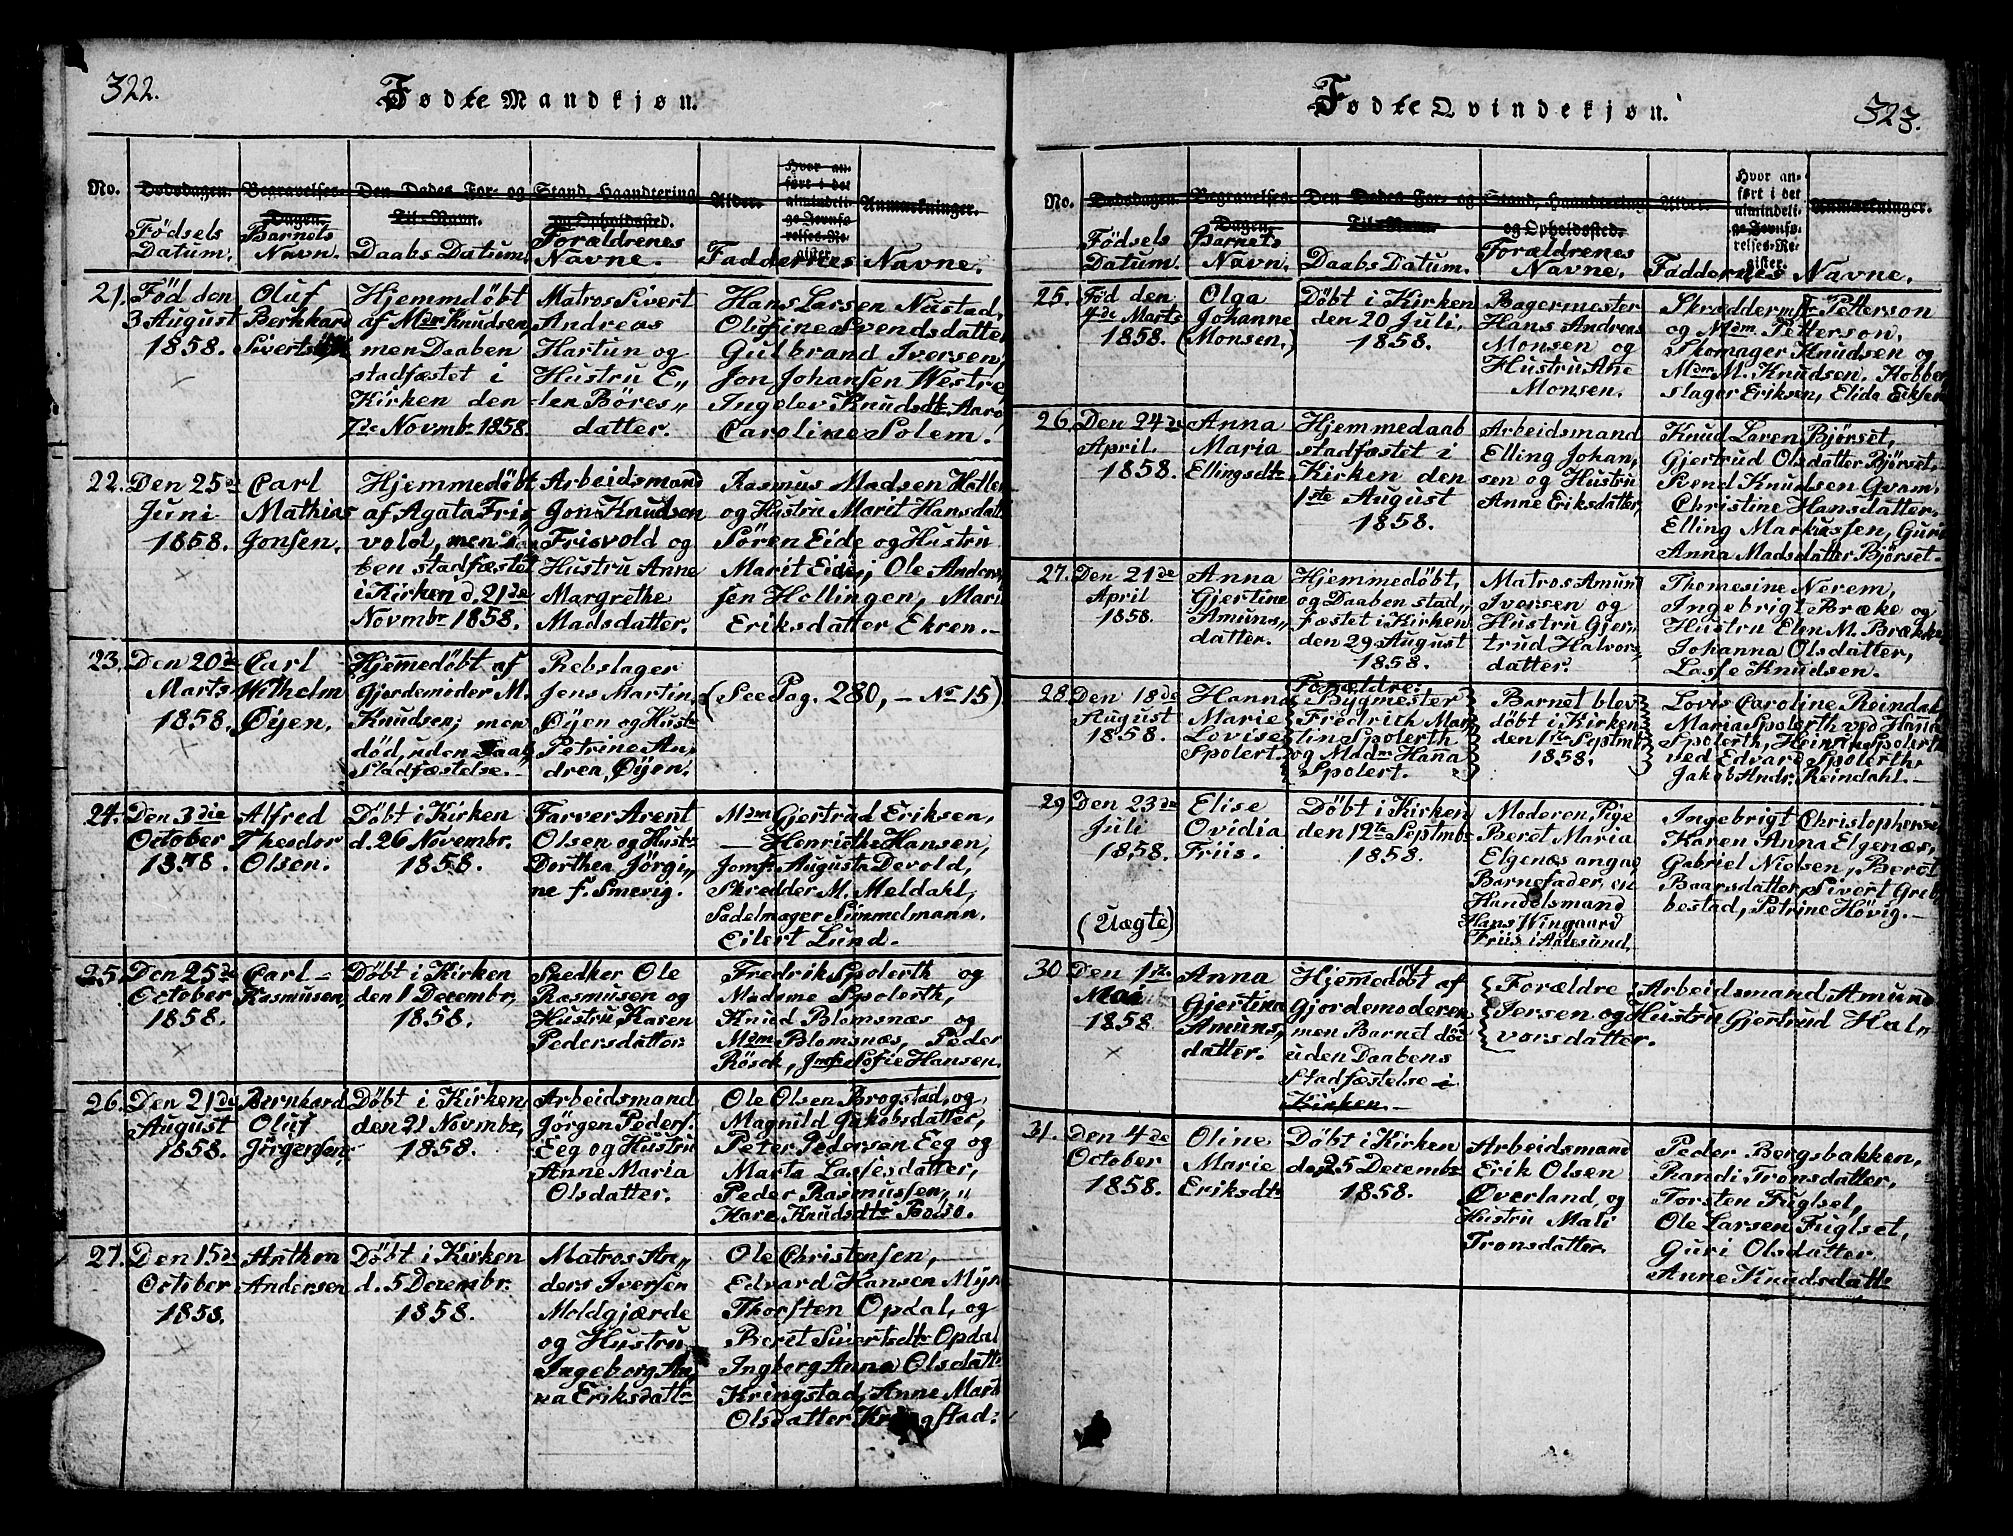 322.
Fødte Mandkjøn.
No.
Dødsdagen.
Fødsels
Datum.
Begravelses-
Dagen.
Barnets
Navn.
Den Dødes For- og
Til-Navn.
Daabs Datum.
Stand, Haandtering
og Opholdssted.
Forældrenes
Navne.
Alder.
Hvor an-
ført i det
almindeli-
ge Jevnfø-
relses-Re-
gister.
Anmærkninger.
Faddernes Navne.
21.
Fød den
3 August
1858.
Oluf
Bernhard
Hjemmedøbt
af Mdm Knudsen,
men Daaben
stadfæstet i
Kirken den
7de Novmbr 1858.
Matros Sivert
Andreas
Hartun og
Hustru E„
len Böres„
datter.
Hans Larsen Nustad,
Olufine Svendsdatter
Gulbrand Iversen,
Jon Johansen Westre,
Ingelev Knudsdtr Aarø
Caroline Solem.
22.
Den 25de
Juni
1858.
Carl
Mathias
Jonsen.
Hjemmedøbt
af Agata Fris„
vold, men Daa
ben stadfæstet
i Kirken d. 21de
Novmbr 1858.
Arbeidsmand
Jon Knudsen
Frisvold og
Hustru Anne
Margrethe
Madsdatter.
Rasmus Madsen Hollen
og Hustru Marit Hansdatt
Sören Eide og Hustru
Marit Eide, Ole Anders,
sen Hollingen, Marit
Eriksdatter Ekren.—
23.
Den 20de
Marts
1858.
Carl
Wilhelm
Øyen.
Hjemmedøbt af
Gjordemoder M.
Knudsen, men
död, uden Daab,
Stadfæstelse.—
Rebslager
Jens Martin,
Øyen og Hustr
Petrine An„
drea Øyen.
(See Pag. 280, — No 15)
24.
Den 3die
October
1858.
Alfred
Theodor
Olsen.
Döbt i Kirken
d. 26 Novembr.
1858.
Farver Arent
Olsen og Hustr
Dorthea Jörgi„
ne f. Smevig.
Mdm Gjertrud Eriksen,
— Henriethe Hansen,
Jomfr. Augusta Devold,
Skredder M. Meldahl,
Sadelmager Simmelmann,
Eilert Lund.
25.
Den 25de
October
1858.
Carl —
Rasmusen,
Döbt i Kirken
den 1 Decembr,
1858.
Snedker Ole
Rasmusen og
Hustru Karen
Pedersdatter.
Fredrik Spolerth og
Madame Spolerth,
Knud Blomsnæs og
Mdm Blomsnæs, Peder
Rösok, Jmfr Sofie Hansen.
26.
Den 21de
August
1858.
Bernhard
Oluf
Jörgensen,
Döbt i Kirken
den 21 Novmbr,
1858.
Arbeidsmand
Jörgen Peders.
Eeg og Hustru
Anne Maria
Olsdatter.
Ole Olsen Brogstad, og
Magnild Jakobsdatter,
Peter Pedersen Eeg og
Marta Lassesdatter,
Peder Rasmussen, „
Kare Knudsdtr Bolsö.
27.
Den 15de
October
1858.
Anthon
Andersen
Döbt i Kirken
d. 5 Decembr.
1858.
Matros An„
ders Iversen
Moldgjærde
og Hustru
Ingeborg An,
na Eriksdattr
Ole Christensen,
Edvard Hansen
Thorsten Opdal, og
Beret Siverts dtr Opdal
Ingberg Anna Olsdattr
Kringstad, Anne Mart
Olsdatter Kringstad.
323.
Fødte Qvindekjøn.
No.
Dødsdagen.
Fødsels
Datum.
Begravelses-
Dagen.
Barnets
Navn.
Den Dødes For- og
Til-Navn.
Daabs Datum.
Stand, Haandtering
og Opholdssted.
Forældrenes
Navne.
Alder.
Hvor an-
ført i det
almindeli-
ge Jevnfø-
relses-Re-
gister.
Anmærkninger.
Faddernes Navne.
25.
Fød den
4de Marts
1858.
Olga
Johanne
(Monsen.)
Döbt i Kirken
den 20 Juli,
1858.
Bagermester
Hans Andreas
Monsen og
Hustru Ane
Monsen.
Skræddermstr Petterson
og Mdm. Petterson,
Skomager Knudsen og
Mdm M. Knudsen, Kobber
slager Eriksen, Elida Eriksen
26.
Den 24de
April.
1858.
Anna
Maria
Ellingsdtr
Hjemmedaab
stadfæstet i
Kirken den
1ste August
1858.
Arbeidsmand
Elling Johan,
sen og Hustru
Anne Eriksdatter,
Knud Loren Bjørset,
Gjertrud Olsdatter Bjørset,
Svend Knudsen Gvam,
Christine Hansdatter,
Elling Markussen, Guri
Anna Madsdatter Bjørset.
27.
Den 21de
April
1858.
Anna
Gjertine
Amuns„
datter.
Hjemmedøbt,
og Daaben stad„
fæstet i Kirken
den 29 August
1858.
Matros Amund
Iversen og
Hustru Gjer„
trud Halvors„
datter.
Thomesine Nerem,
Ingebrigt Bræke og
Hustru Elen M. Brække
Johanna Olsdatter,
Lasse Knudsen.
28.
Den 18de
August
1858.
Hanna
Marie
Lovise
Spolert.
Forældre:
Bygmester
Fredrich Mar,
tin Spolerth
og Madm Hana
Spolert.
Barnet blev
döbt i Kirken
den 1ste Septmb
1858.
Lovis Caroline Reindal
Maria Spolerth ved Hanna
Spolerth, Heinrin Spolerth
ved Edvard Spolerth,
Jakob Andr. Reindahl.—
29.
Den 23de
Juli
1858.
(Uægte)
Elise
Ovidia
Friis.
Döbt i Kirken
den 12te Septmbr
1858.
Moderen, Pige
Beret Maria
Elgenæs angav
Barnefader, en
Handelsmand
Hans Wingaard
Friis i Aalesund
Ingebrigt Christophersen
Karen Anna Elgenæs,
Gabriel Nielsen, Beret
Baarsdatter, Sivert Greb
bestad, Petrine Hövig.—
30.
Den 1ste
Mai
1858.
Anna
Gjertina
Amuns,
datter.
Hjemmedöbt af
Gjordemoderen
men Barnet död
uden Daabens
Stadfæstelse i
Kirken.—
Forældre Arbeidsmand Amund
Iersen og Hustru Gjertrud Hal„
vorsdatter.
31.
Den 4de
October
1858.
Oline
Marie
Eriksdtr
Döbt i Kirken
den 25 Decembr
1858.
Arbeidsmand
Erik Olsen
Øverland, og
Hustru Mali
Tronsdatter.
Peder Bergsbakken,
Randi Tronsdatter,
Torsten Fuglset,
Ole Larsen Fuglset,
Guri Olsdatter
Anne Knudsdattr